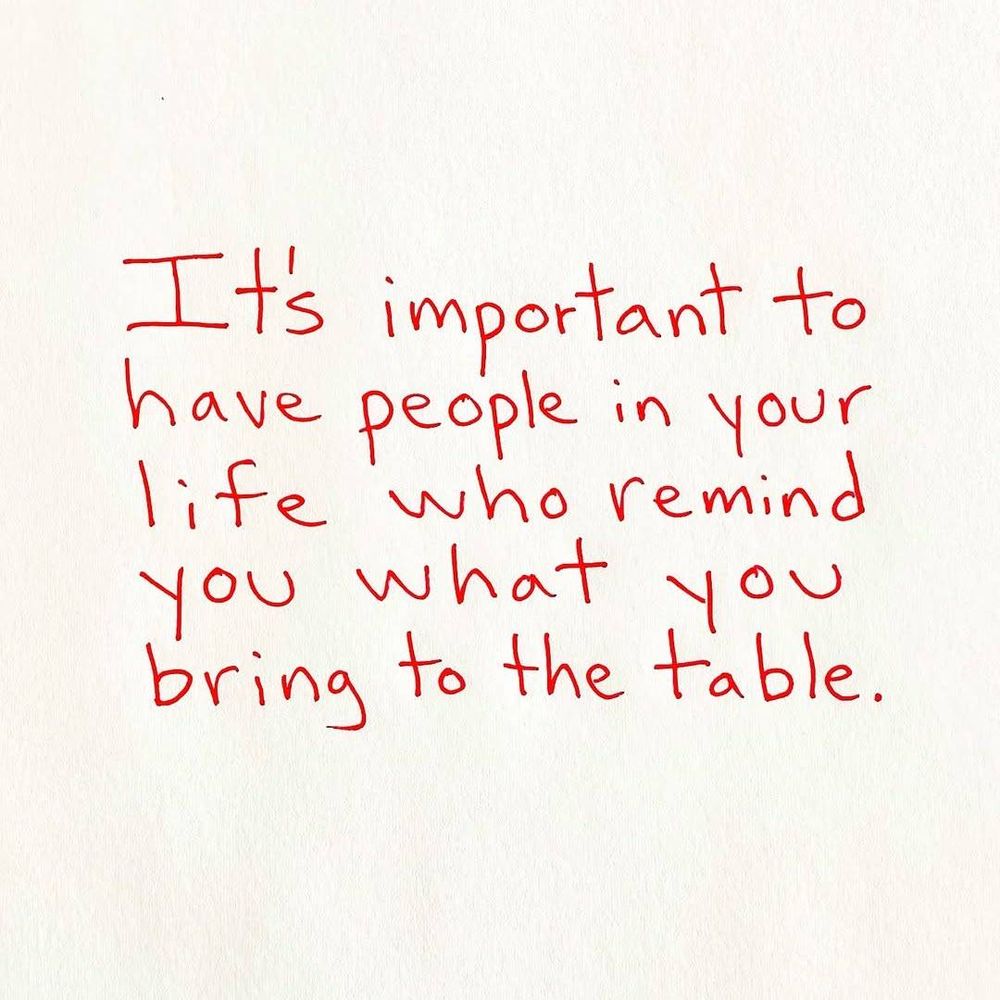 It's important to
have people in your
life who remind
you what you
bring to the table.